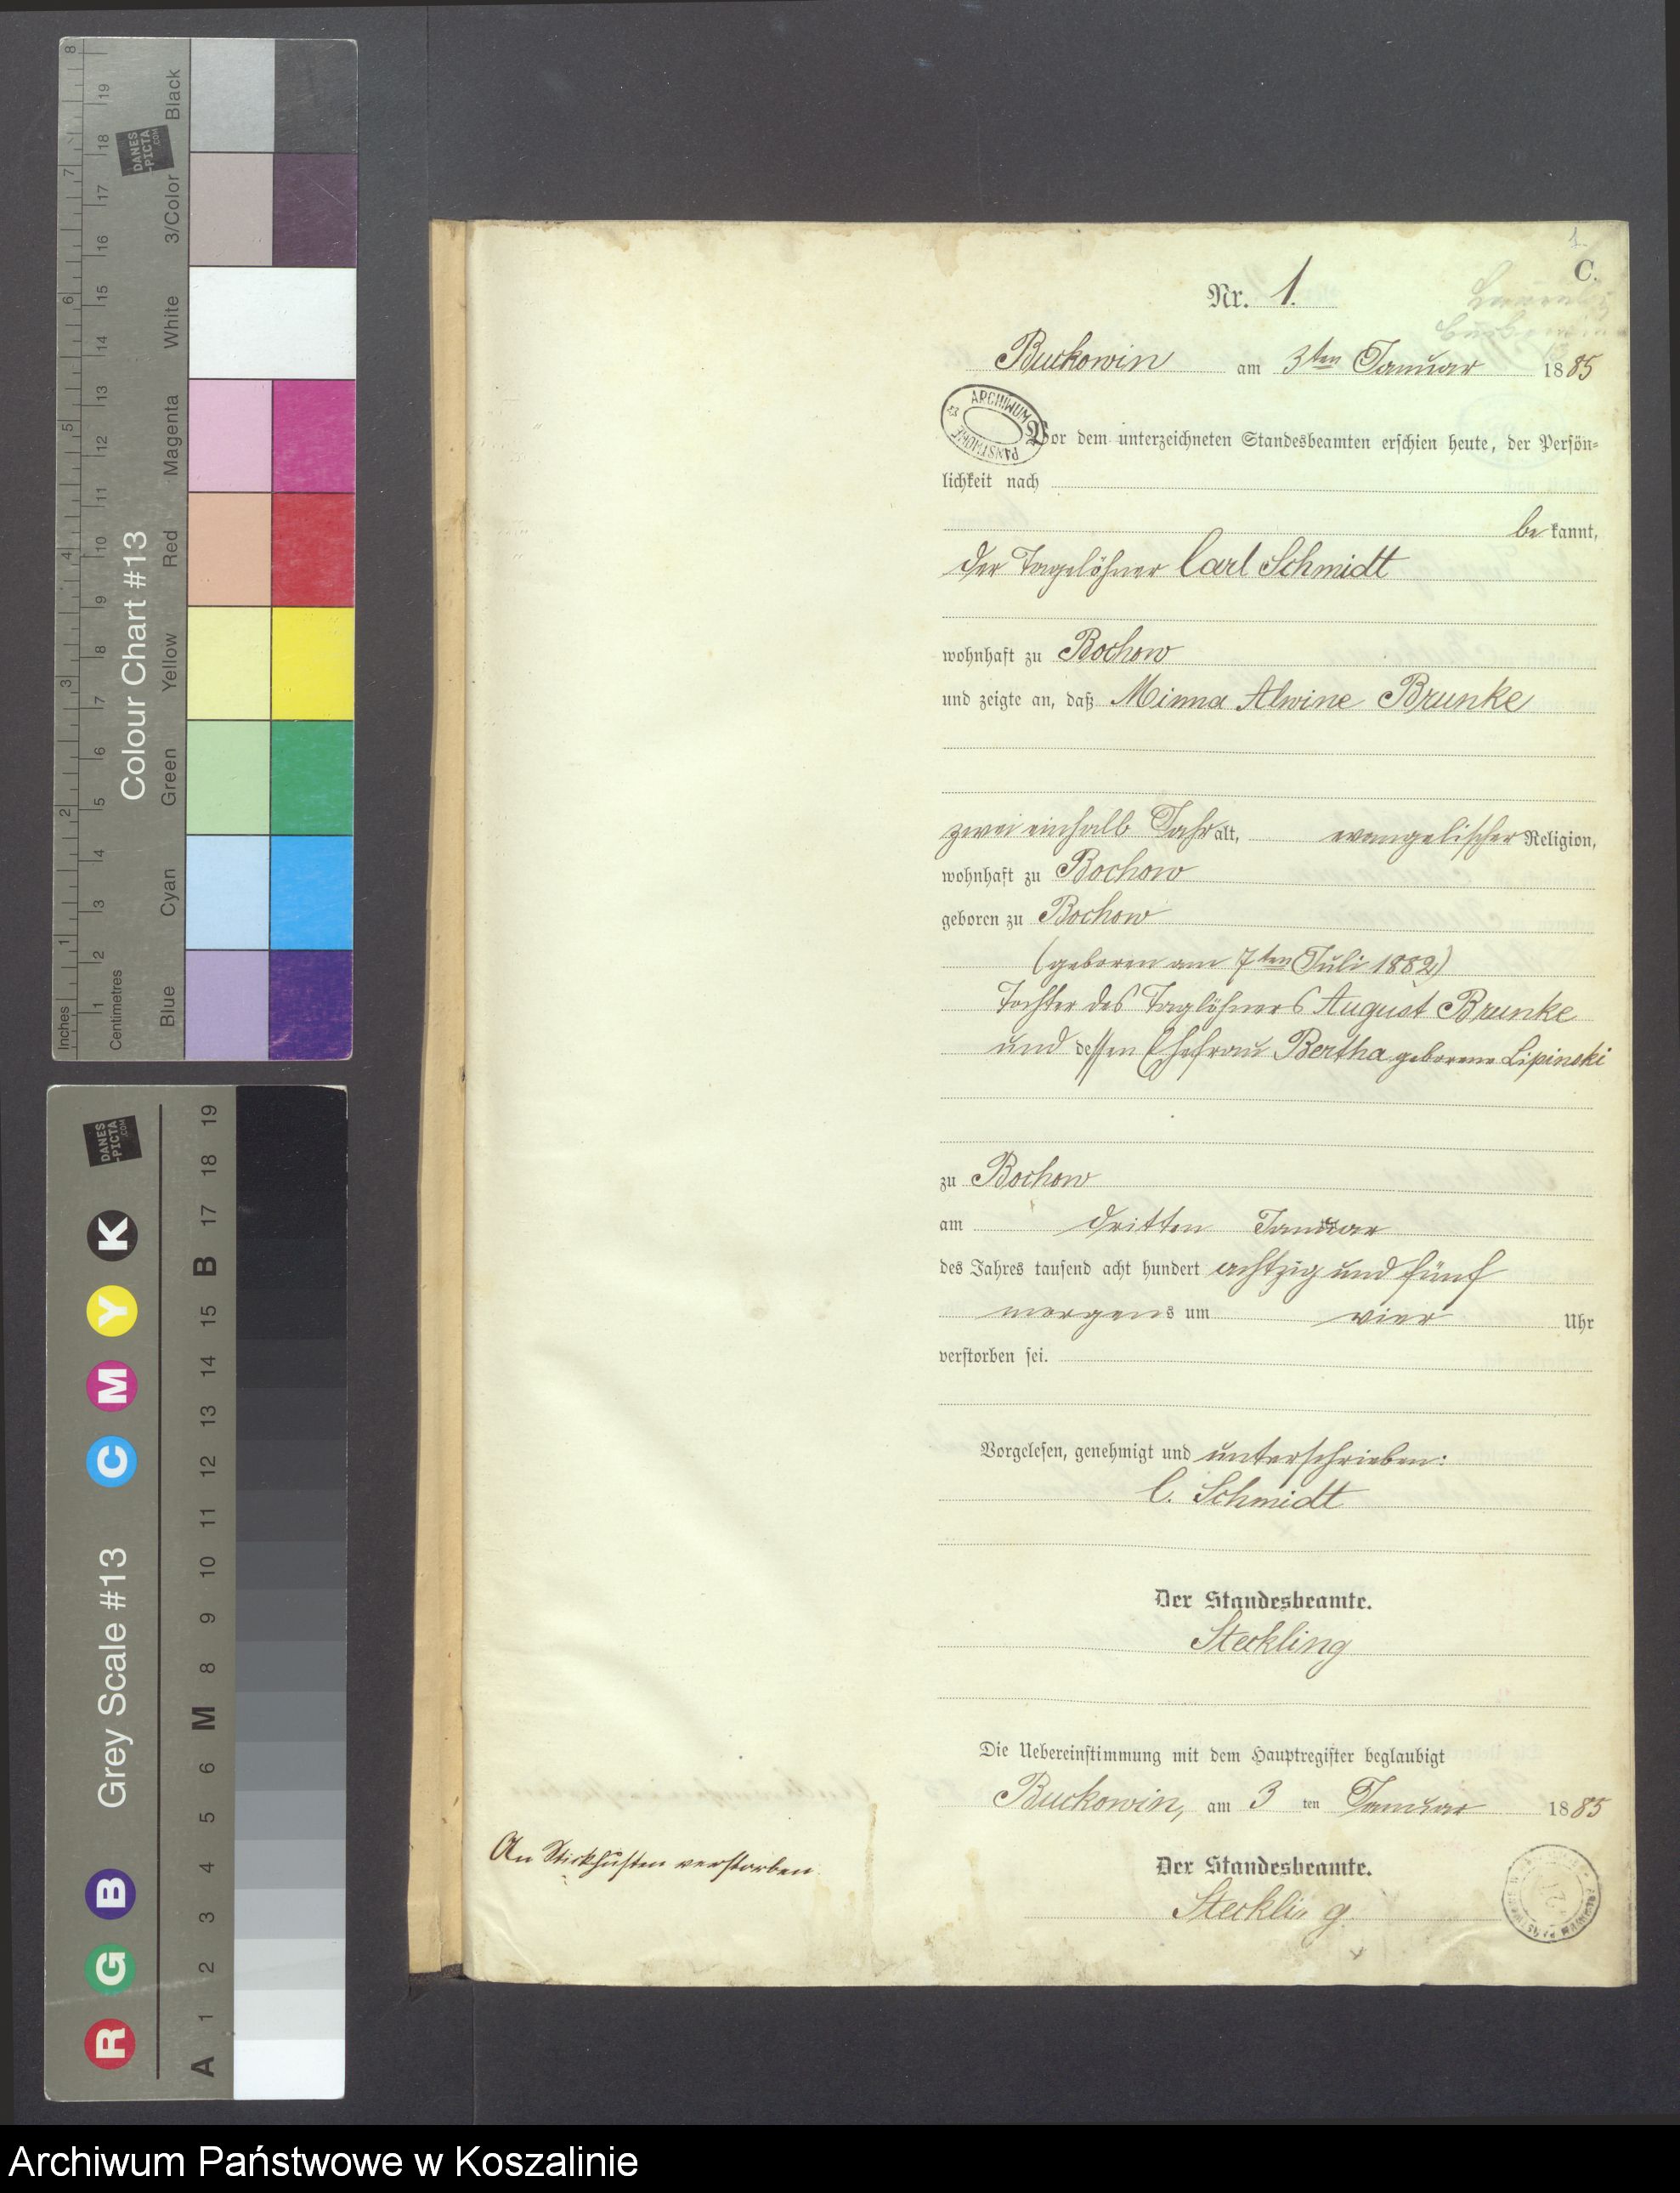 1.
C.
Nr. 1.
Buckowin am 3ten Januar 1885
ARCHIWUM PAŃSTWOWE
Vor dem unterzeichneten Standesbeamten erschien heute, der Persön-
lichkeit nach
be kannt,
der Tagelöhner Carl Schmidt
wohnhaft zu Bochow
und zeigte an, daß Minna Alwine Brunke
zwei einhalb Jahr alt, evangelischer Religion,
wohnhaft zu Bochow
geboren zu Bochow
(geboren am 7ten Juli 1882)
Tochter des Taglöhners August Brunke
und dessen Ehefrau Bertha geborene Lipinski
zu Bochow
am dritten Januar
des Jahres tausend acht hundert achtzig und fünf
morgens um vier Uhr
verstorben sei.
Vorgelesen, genehmigt und unterschrieben:
C. Schmidt
Der Standesbeamte.
Steckling
Die Uebereinstimmung mit dem Hauptregister beglaubigt
Buckowin, am 3 ten Januar 1885
Der Standesbeamte.
Steckling
An Stickhusten verstorben.
Colour Chart #13
DANES
-PICTA
.COM
Inches 1 2 3 4 5 6 7 8
Centimetres 1 2 3 4 5 6 7 8 9 10 11 12 13 14 15 16 17 18 19
Blue Cyan Green Yellow Red Magenta White 3/Color Black
Grey Scale #13
DANES
-PICTA
.COM
R G B C M Y K
A 1 2 3 4 5 6 M 8 9 10 11 12 13 14 15 B 17 18 19
Archiwum Państwowe w Koszalinie